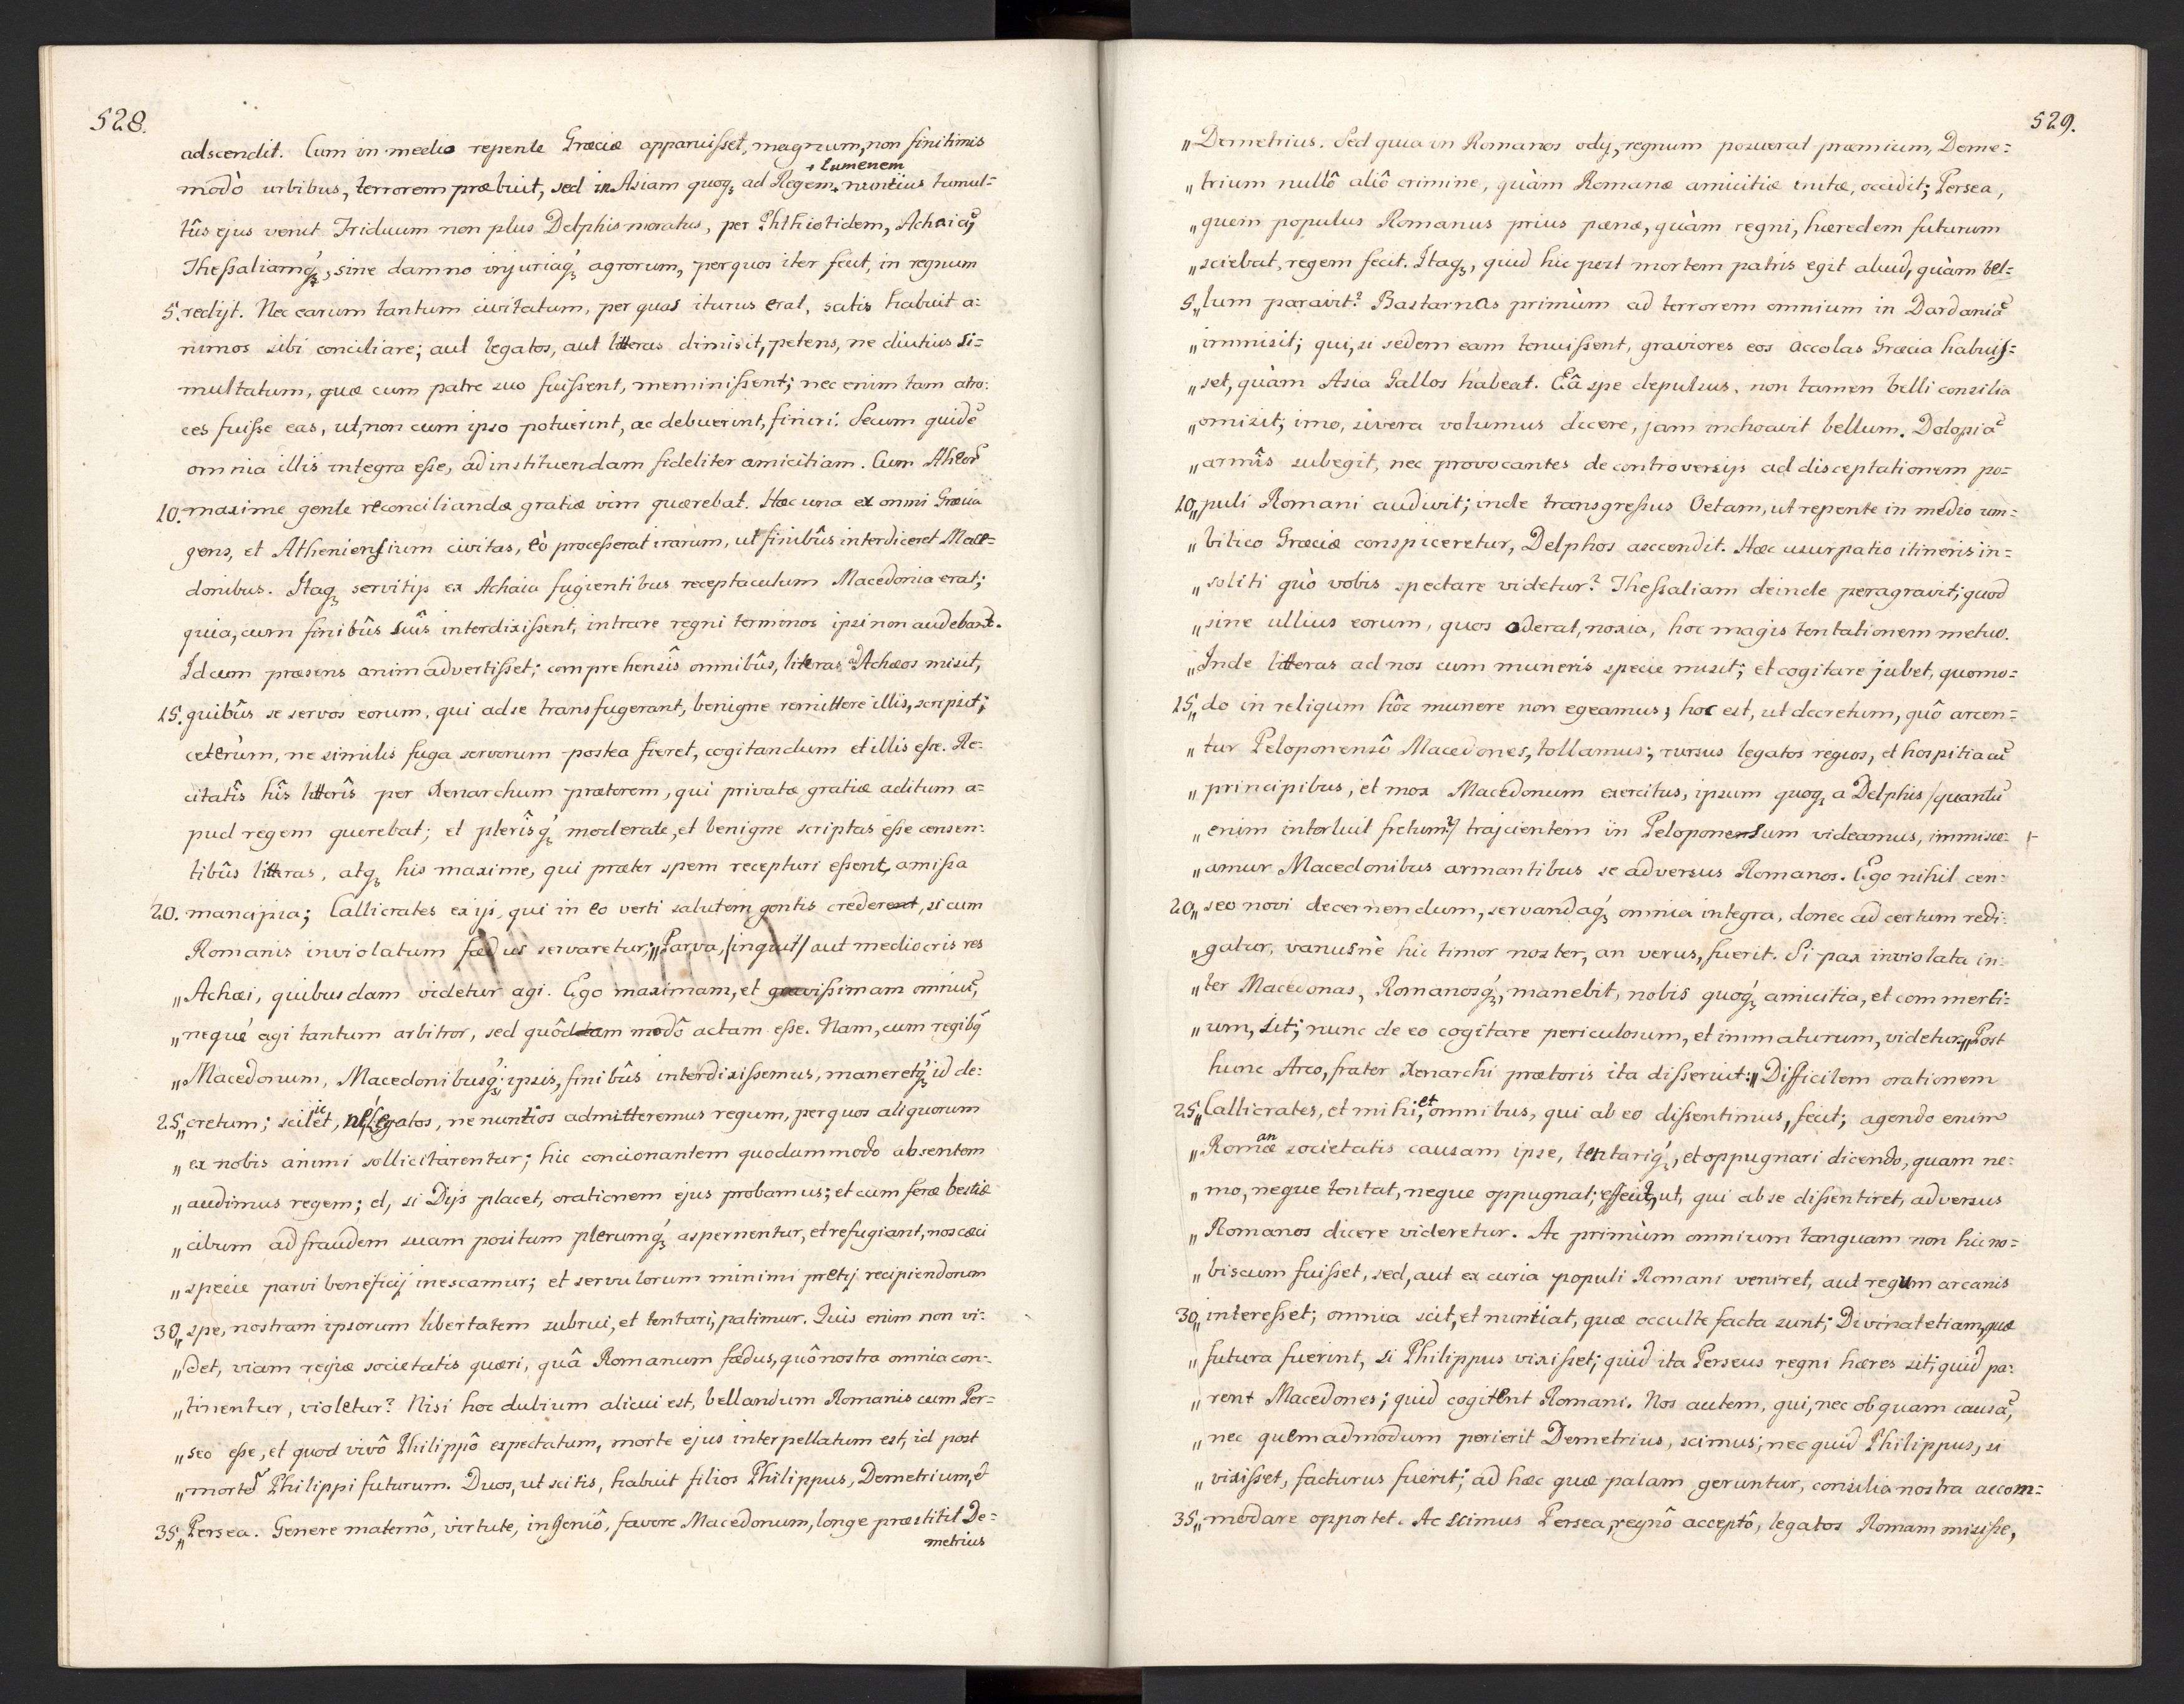 528.
adscendit. Cum in medio repente Græciæ apparuisset, magnum, non finitimis
+ Eumenem
modò urbibus, terrorem præbuit, sed in Asiam quoq; ad Regem + nuntius tumul=
tûs ejus venit Triduum non plus Delphis moratus, per Phthiotidem, Achaiā,
Thessaliamq́;, sine damno injuriaq́; agrorum, per quos iter fecit, in regnum
5. redijt. Nec earum tantum civitatum, per quas iturus erat, satis habuit a=
nimos sibi conciliare; aut legatos, aut litteras dimisit, petens, ne diutius si=
multatum, quæ cum patre suo fuissent, meminissent; nec enim tam atro=
ces fuisse eas, ut, non cum ipso potuerint, ac debuerint, finiri. Secum quidē
omnia illis integra esse, ad instituendam fideliter amicitiam. Cum Atheor̃
10. maxime gente reconciliandæ gratiæ vim quærebat. Hæc una ex omni Græcia
gens, et Atheniensium civitas, eò processerat irarum, ut finibûs interdiceret Mace=
donibus. Itaq; servitijs ex Achaia fugientibus receptaculum Macedonia erat;
quia, cum finibûs suîs interdixissent, intrare regni terminos ipsi non audebant.
Id cum præsens animadvertisset; comprehensîs omnibûs, literas ad Achæos misit,
15. quibûs se servos eorum, qui ad se transfugerant, benigne remittere illis, scripsit;
ceterùm, ne similis fuga servorum postea fieret, cogitandum et illis esse. Re=
citatîs hîs litterîs per Xenarchum prætorem, qui privatæ gratiæ aditum a=
pud regem querebat; et plerîsq́; moderate, et benigne scriptas esse censen=
tibûs litteras, atq; his maxime, qui præter spem recepturi essent, amissa
20. mancipia; Callicrates ex ijs, qui in eo verti salutem gentis crederent, si cum
Romanis inviolatum fœdus servaretur; „Parva, /inquit/ aut mediocris res
„Achæi, quibusdam videtur agi. Ego maximam, et gravissimam omniū,
„nequé agi tantum arbitror, sed quôdam modô actam esse. Nam, cum regibq̃
„Macedonum, Macedonibusq́; ipsis, finibûs interdixissemus, maneretq́; id de=
25.„cretum; scilicet, ne legatos, ne nuntios admitteremus regum, per quos aliquorum
„ex nobis animi sollicitarentur; hic concionantem quodammodo absentem
„audimus regem; et, si Dijs placet, orationem ejus probamus; et cum feræ bestiæ
„cibum ad fraudem suam positum plerumq́; aspernentur, et refugiant, nos cæci
„specie parvi beneficij inescamur; et servulorum minimi pretij recipiendorum
30.„spe, nostram ipsorum libertatem subrui, et tentari, patimur. Quis enim non vi=
„det, viam regiæ societatis quæri, quâ Romanum fœdus, quô nostra omnia con=
„tinentur, violetur? Nisi hoc dubium alicui est, bellandum Romanis cum Per=
„seo esse, et quod vivô Philippô expectatum, morte ejus interpellatum est, id post
„mortē Philippi futurum. Duos, ut scitis, habuit filios Philippus, Demetrium, et
35.„Persea. Genere maternô, virtute, ingeniô, favore Macedonum, longe præstitit De=
metrius
529.
„Demetrius. Sed quia in Romanos odij, regnum posuerat præmium, Deme=
„trium nullô aliô crimine, quàm Romanæ amicitiæ initæ, occidit; Persea,
„quem populus Romanus prius pœnæ, quàm regni, hæredem futurum
„sciebat, regem fecit. Itaq;, quid hic post mortem patris egit aliud, quàm bel=
5.„lum paravit? Bastarnas primùm ad terrorem omnium in Dardaniā
„immisit; qui, si sedem eam tenuissent, graviores eos accolas Græcia habuis=
„set, quàm Asia Gallos habeat. Eâ spe depulsus, non tamen belli consilia
„omisit; imo, si vera volumus dicere, jam inchoavit bellum. Dolopiā
„armîs subegit, nec provocantes de controversijs ad disceptationem po=
10.„puli Romani audivit; inde transgressus Oetam, ut repente in medio um=
„bilico Græciæ conspiceretur, Delphos asccendit. Hæc usurpatio itineris in=
„soliti quò vobis spectare videtur? Thessaliam deinde peragravit; quod
„sine ullius eorum, quos oderat, noxia, hoc magis tentationem metuo.
„Inde litteras ad nos cum muneris specie misit; et cogitare jubet, quomo=
15.„do in reliqum hôc munere non egeamus; hoc est, ut decretum, quô arcen=
„tur Peloponensô Macedones, tollamus; rursus legatos regios, et hospitia cū
„principibus, et mox Macedonum exercitus, ipsum quoq; a Delphis /quantū
„enim interluit fretum?/ trajcientem in Peloponensum videamus, immisce=
„amur Macedonibus armantibus se adversus Romanos. Ego nihil cen=
20.„seo novi decernendum, servandaq́; omnia integra, donec ad certum redi=
„gatur, vanusnè hic timor noster, an verus, fuerit. Si pax inviolata in=
„ter Macedonas, Romanosq́;, manebit, nobis quoq́; amicitia, et commerti=
„um, sit; nunc de eo cogitare periculosum, et immaturum, videtur,„Post
hunc Arco, frater Xenarchi prætoris ita disseruit: „Difficilem orationem
25.„Callicrates, et mihi, et omnibus, qui ab eo dissentimus, fecit; agendo enim
„Romanæ societatis causam ipse, tentariq́;, et oppugnari dicendo, quam ne=
„mo, neque tentat, neque oppugnat; effecit, ut, qui ab se dissentiret, adversus
„Romanos dicere videretur. Ac primùm omnium tanquam non hic no=
„biscum fuisset, sed, aut ex curia populi Romani veniret, aut regum arcanis
30.„interesset; omnia scit, et nuntiat, quæ occulte facta sunt; Divinat etiam, quæ
„futura fuerint, si Philippus vixisset; quid ita Perseus regni hæres sit; quid pa=
„rent Macedones; quid cogitent Romani. Nos autem, qui, nec ob quam causā,
„nec quemadmodum perierit Demetrius, scimus; nec quid Philippus, si
„vixisset, facturus fuerit; ad hæc quæ palam geruntur, consilia nostra accom=
35.„modare opportet. Ac scimus Persea, regnô acceptô, legatos Romam misisse,